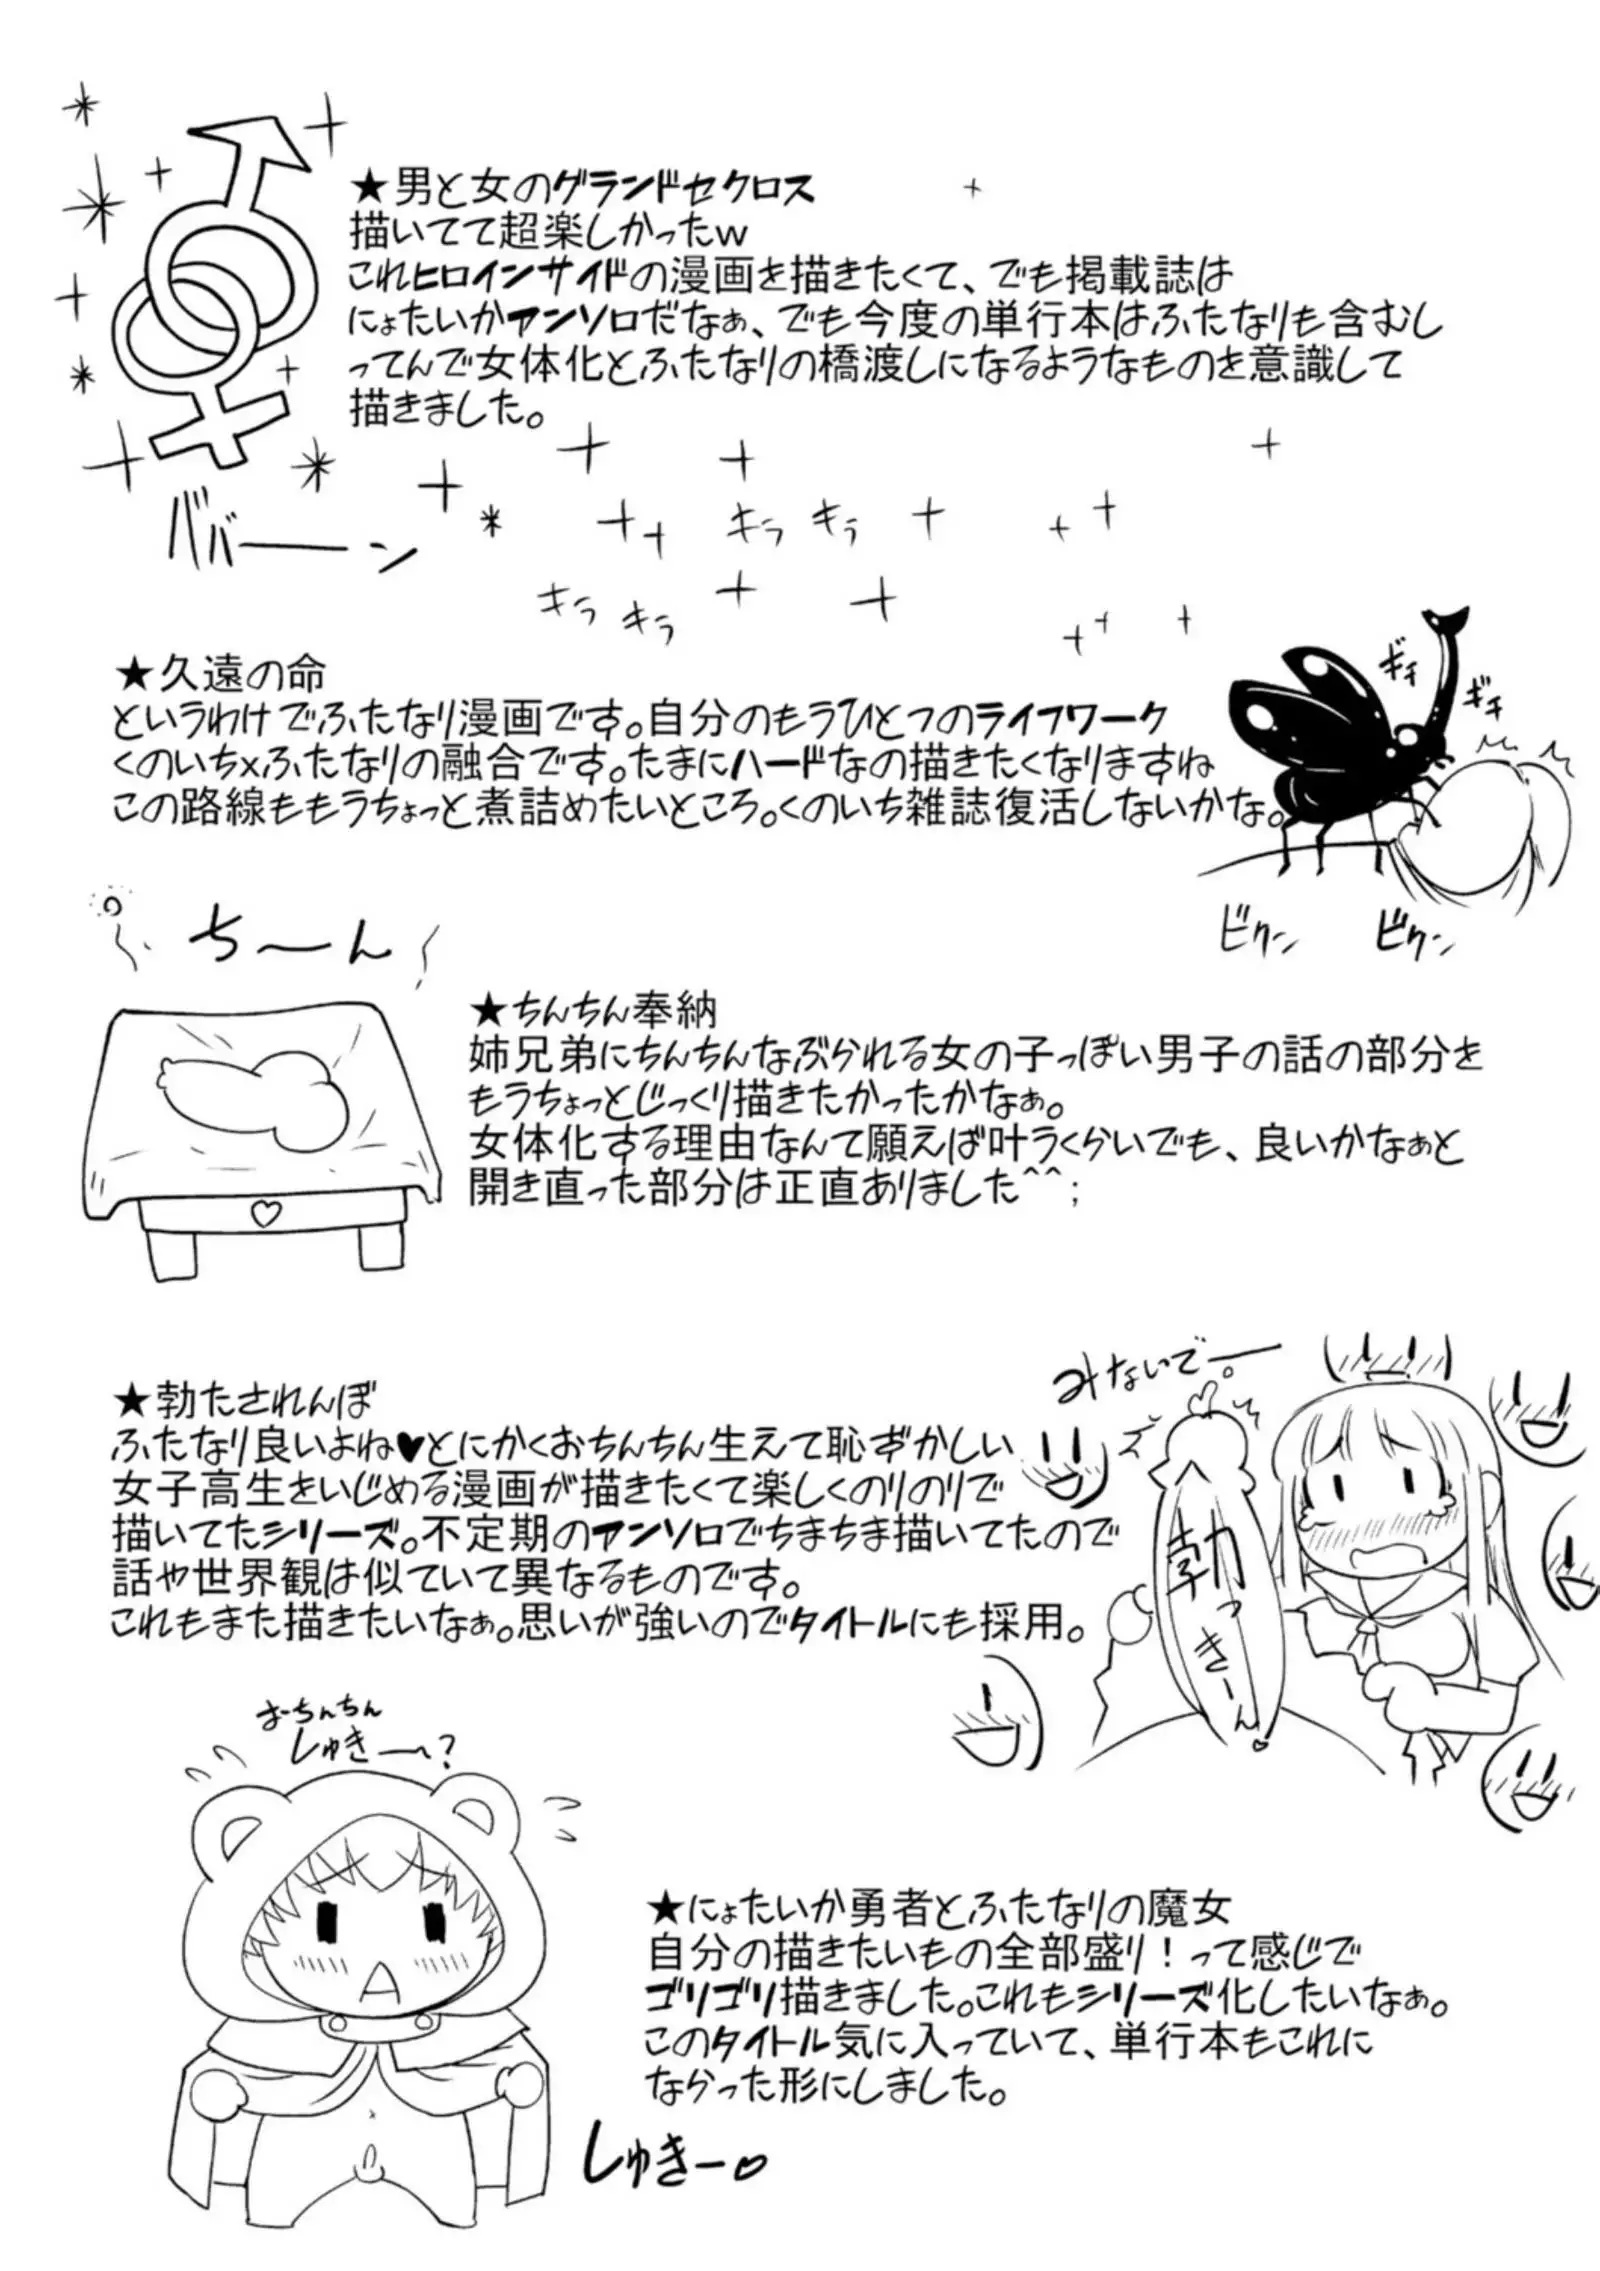 ★男と女のグランドセクロス
描いてて超楽しかったw
これヒロインサイドの漫画を描きたくて、でも掲載誌は
にょたいかアンソロだなぁ、でも今度の単行本はふたなりも含むし
ってんで女体化とふたなりの橋渡しになるようなものを意識して
描きました。
ババーーン
キラ キラ
キラ キラ
★久遠の命
というわけでふたなり漫画です。自分のもうひとつのライフワーク
くのいちxふたなりの融合です。たまにハードなの描きたくなりますね
この路線ももうちょっと煮詰めたいところ。くのいち雑誌復活しないかな。
ギチ
ギチ
ビクン
ビクン
ち〜ん
★ちんちん奉納
姉兄弟にちんちんなぶられる女の子っぽい男子の話の部分を
もうちょっとじっくり描きたかったかなぁ。
女体化する理由なんて願えば叶うくらいでも、良いかなぁと
開き直った部分は正直ありました^^;
★勃たされんぼ
ふたなり良いよね♥とにかくおちんちん生えて恥ずかしい
女子高生をいじめる漫画が描きたくて楽しくのりのりで
描いてたシリーズ。不定期のアンソロでちまちま描いてたので
話や世界観は似ていて異なるものです。
これもまた描きたいなぁ。思いが強いのでタイトルにも採用。
みないでー。
勃っきーん♡
おーちんちん
しゅきー〜?
★にょたいか勇者とふたなりの魔女
自分の描きたいもの全部盛り！って感じで
ゴリゴリ描きました。これもシリーズ化したいなぁ。
このタイトル気に入っていて、単行本もこれに
ならった形にしました。
しゅきー♡